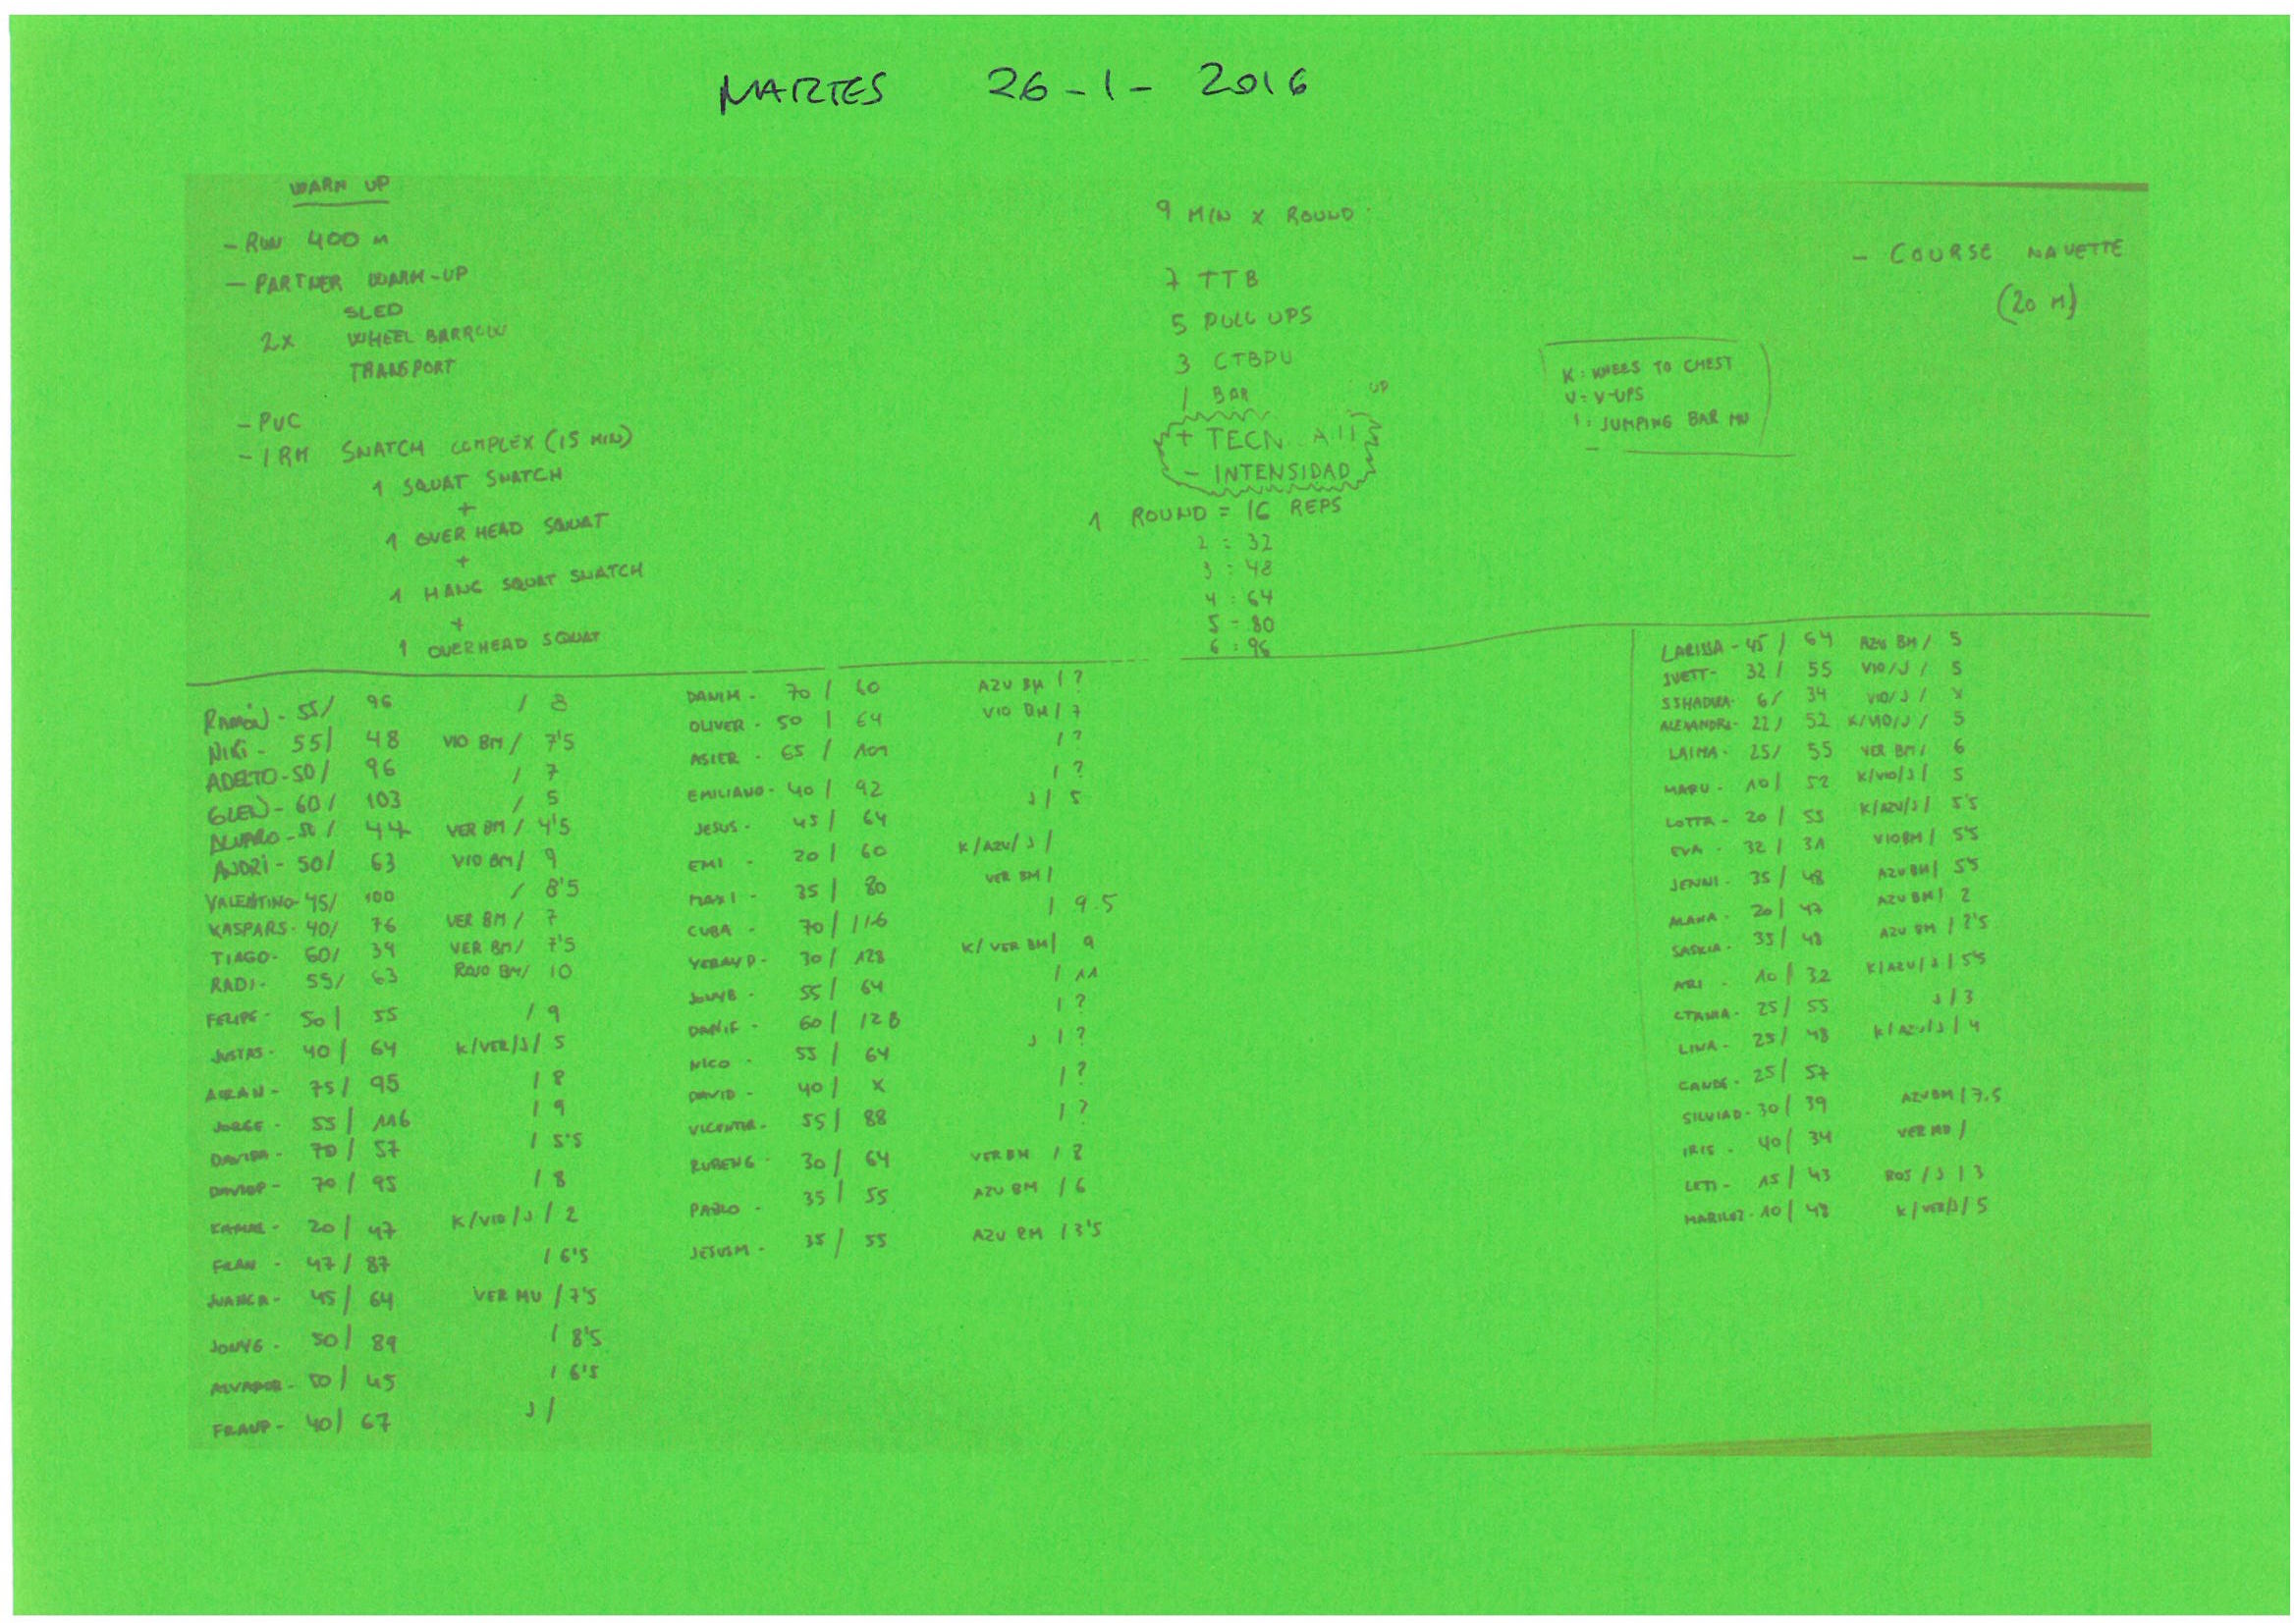 MARTES 26-1-2016
WARM UP
- RUN 400 M
- PARTNER WARM-UP
SLED
2X WHEEL BARROW
TRANSPORT
- PVC
- 1 RM SNATCH COMPLEX (15 MIN)
1 SQUAT SNATCH
+
1 OVER HEAD SQUAT
+
1 HANG SQUAT SNATCH
+
1 OVERHEAD SQUAT
9 MIN X ROUND:
7 TTB
5 PULL UPS
3 CTBPU
1 BAR UP
+ TECN
- INTENSIDAD
1 ROUND = 16 REPS
2 : 32
3 : 48
4 : 64
5 - 80
6 : 96
K: KNEES TO CHEST
V= V-UPS
: JUMPING BAR MU
- COURSE NAVETTE
(20 M)
RAMÓN - 55/ 96 / 8
NIKI - 55/ 48 VIO BM / 7'5
ADELTO - 50/ 96 / 7
GLEN - 60/ 103 / 5
ALVARO - 50/ 44 VER BM / 4'5
ANDRI - 50/ 63 VIO BM/ 9
VALENTINO - 45/ 100 / 8'5
KASPARS - 40/ 76 VER BM / 7
TIAGO - 60/ 39 VER BM/ 7'5
RADI - 55/ 63 ROJO BM/ 10
FELIPE - 50/ 55 / 9
JUSTAS - 40/ 64 K/VER/J/ 5
75/ 95 / 8
JORGE - 55/ 116 / 9
70/ 57 / 5'5
DAVIDP - 70/ 95 / 8
KAMAL - 20/ 47 K/VIO/J/ 2
FRAN - 47/ 87 / 6'5
JUANCA - 45/ 64 VER MU / 7'5
JONYG - 50/ 89 / 8'5
50/ 45 / 6'5
FRANP - 40/ 67 J/
DANIM - 70 / 60 AZU BM / ?
OLIVER - 50 / 64 VIO BM / 7
ASIER - 65 / 101 / ?
EMILIANO - 40 / 92 / ?
JESUS - 45/ 64 J / 5
EMI - 20 / 60 K/AZU/J/
MAXI - 35 / 80 VER BM /
CUBA - 70 / 116 / 9.5
YERAYD - 30/ 128 K/ VER BM/ 9
JONYB - 55/ 64 / 11
DANIF - 60/ 128 / ?
NICO - 55/ 64 J / ?
DAVID - 40/ X / ?
55/ 88 / ?
RUBENG - 30/ 64 VER BM /
PABLO - 35/ 55 AZU BM / 6
JESUSM - 35/ 55 AZU BM / 3'5
LARISSA - 45 / 64 AZU BM / 5
IVETT - 32/ 55 VIO/J / 5
6/ 34 VIO/J / X
22/ 52 K/VIO/J / 5
LAIMA - 25/ 55 VER BM / 6
MARU - 10/ 52 K/VIO/J/ 5
LOTTA - 20 / 55 K/AZU/J/ 5'5
EVA - 32 / 31 VIO BM/ 5'5
JENNI - 35 / 48 AZU BM/ 5'5
20/ 47 AZU BM / 2
SASKIA - 35/ 48 AZU BM /
ARI - 10 / 32 K/AZU/J/ 5'5
25/ 55 J / 3
LINA - 25/ 48 K/AZU/J / 4
CANDE - 25/ 57
SILVIAD - 30 / 39 AZU BM / 7.5
IRIS - 40/ 34 VER MU /
LETI - 15 / 43 ROJ / J / 3
MARILUZ - 10/ 48 K/VER/J/ 5